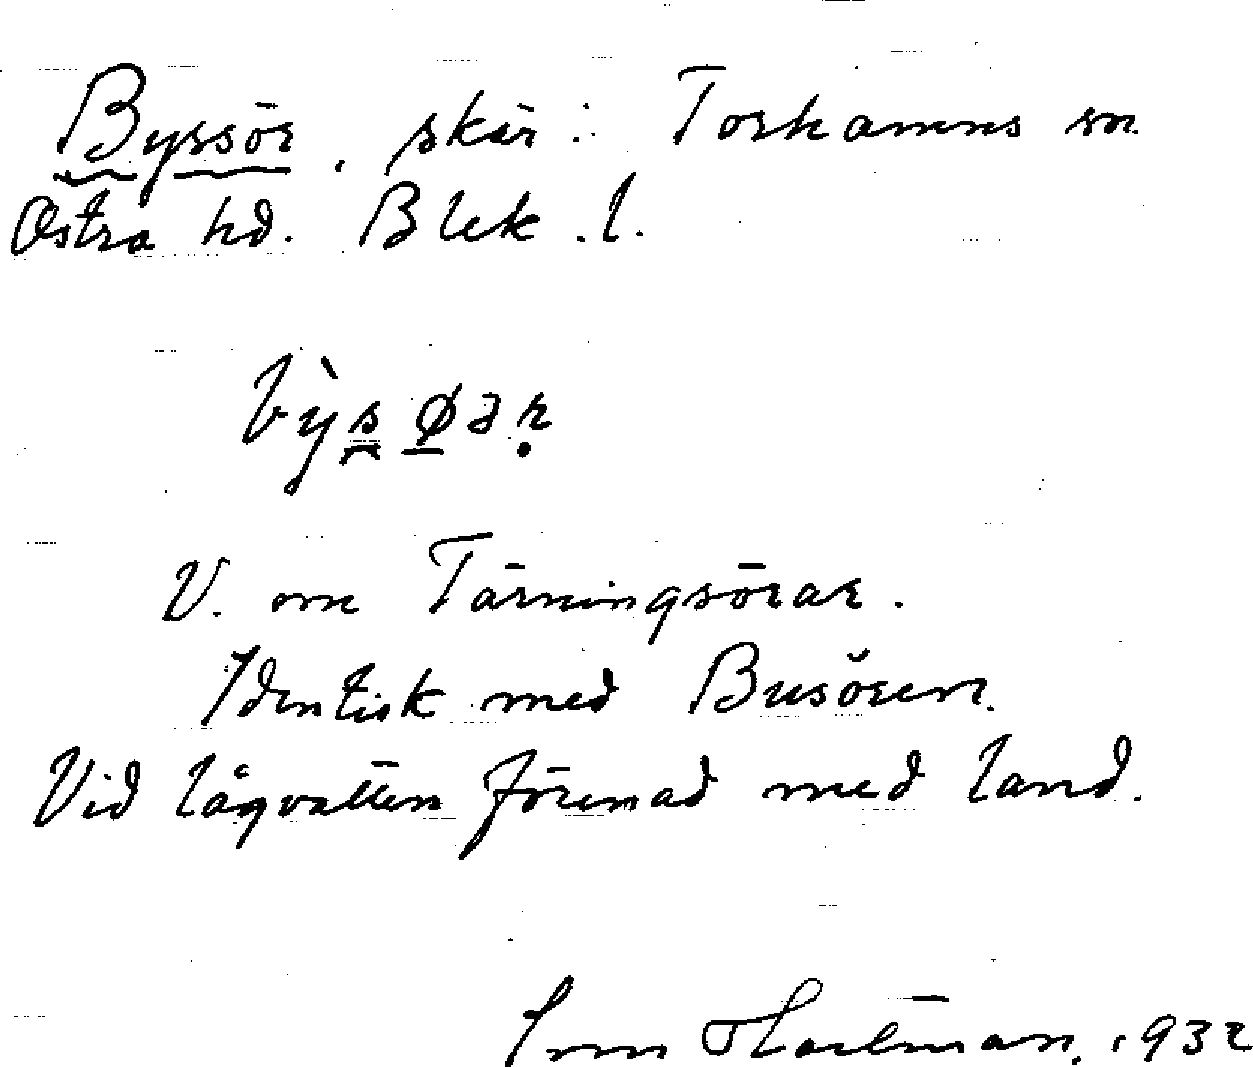 Byssör, skär i Torhamns sn
Östra hd. Blek. l.
bỳsøər
V. om Tärningsörar.
Identisk med Busören.
Vid lågvatten förenad med land.
1932